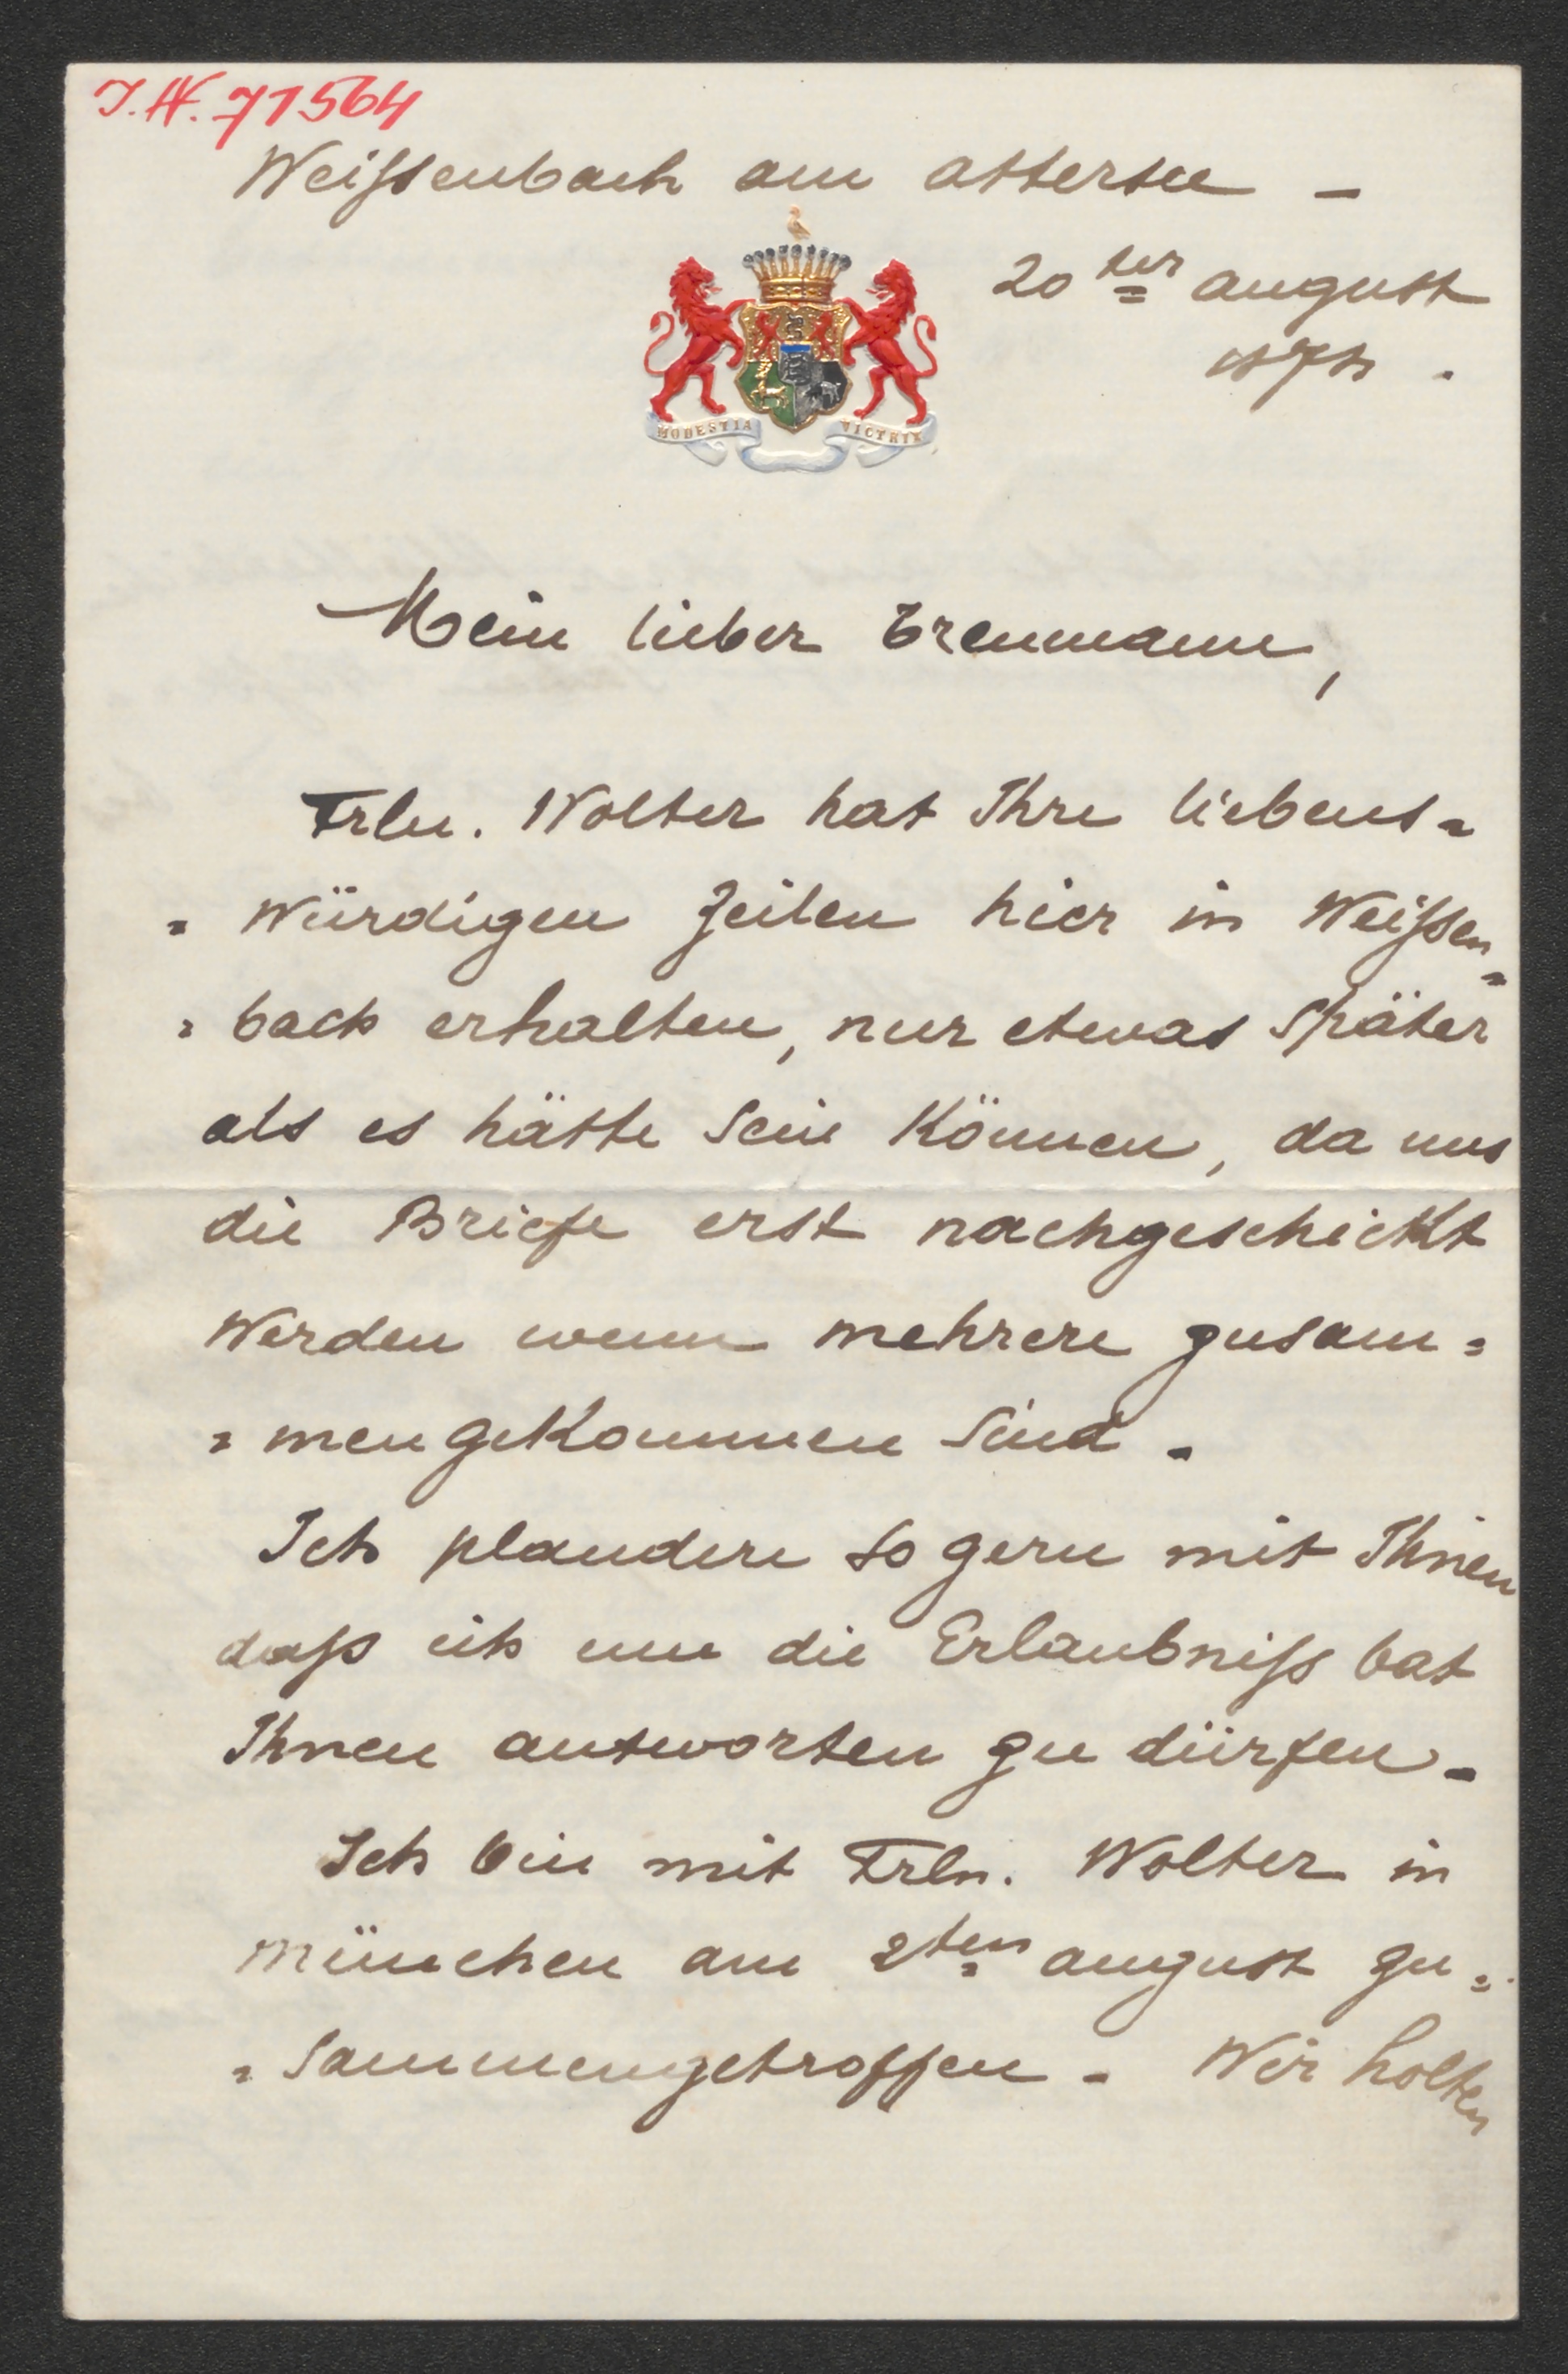 I.N. 71564
Weißenbach am attersee –
20ter august
MODESTIA VICTRIX
Mein lieber
Frln. Wolter hat Ihre liebens=
= würdigen Zeilen hier in Weißen=
= bach erhalten, nur etwas später
als es hätte sein können, da uns
die Briefe erst nachgeschickt
werden wenn mehrere zusam=
= mengekommen sind.
Ich plaudere so gern mit Ihnen
daß ich um die Erlaubniß bat
Ihnen antworten zu dürfen.
Ich bin mit Frln. Wolter in
münchen am 2ten august zu=
= sammengetroffen. Wir holten